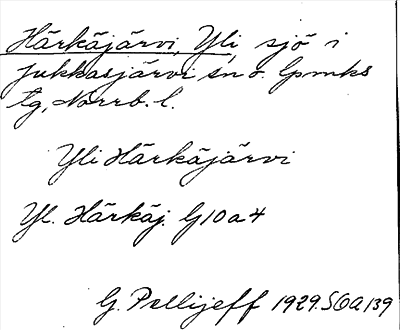 Härkäjärvi, Yli, sjö i
Jukkasjärvi sn o. lpmks
tg, Norrb. l.
Yli Härkäjärvi
Yl. Härkäj. G10a4
G. Pellijeff 1929. SOA 139